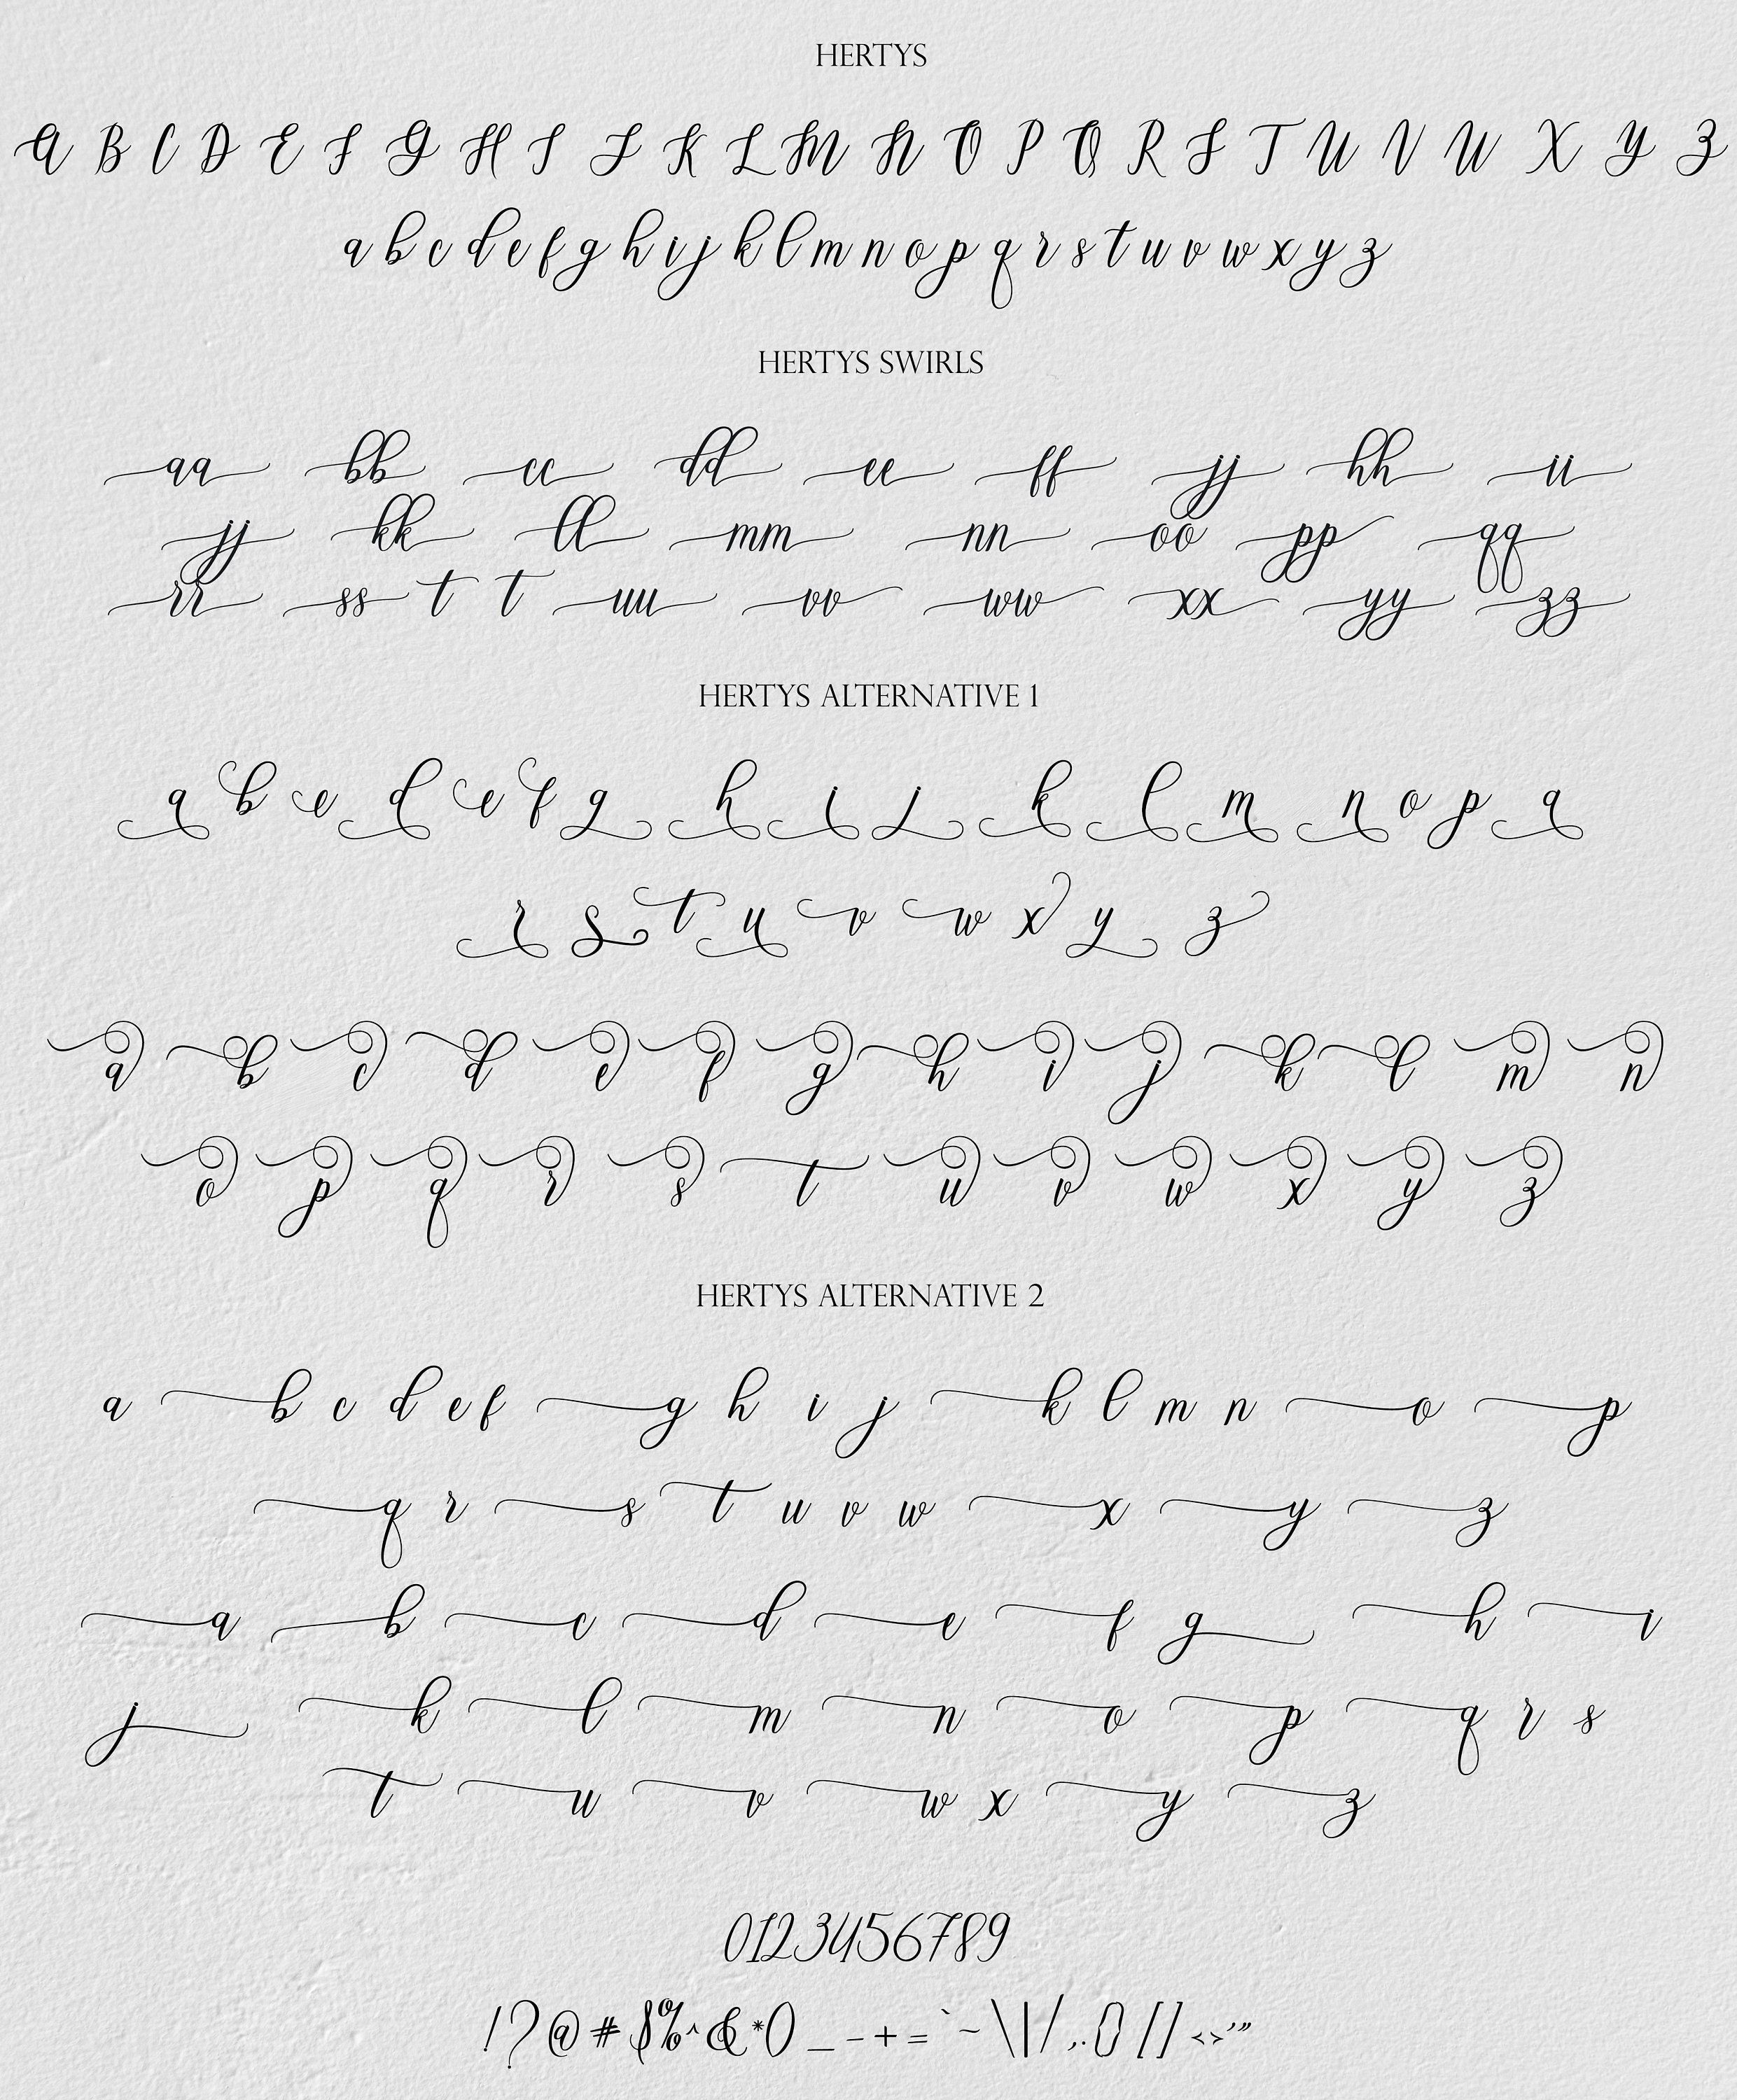 HERTYS
A B C D E F G H I J K L M N O P Q R S T U V W X Y Z
a b c d e f g h i j k l m n o p q r s t u v w x y z
HERTYS SWIRLS
aa bb cc dd ee ff jj hh ii
jj kk ll mm nn oo pp qq
rr ss t t uu vv ww xx yy zz
HERTYS ALTERNATIVE 1
a b c d e f g h i j k l m n o p q
r s t u v w x y z
a b c d e f g h i j k l m n
o p q r s t u v w x y z
HERTYS ALTERNATIVE 2
a b c d e f g h i j k l m n o p
q r s t u v w x y z
a b c d e f g h i
j k l m n o p q r s
t u v w x y z
0123456789
!?@#$%^&*()_-+=`~\|/,.{}[]<>'"